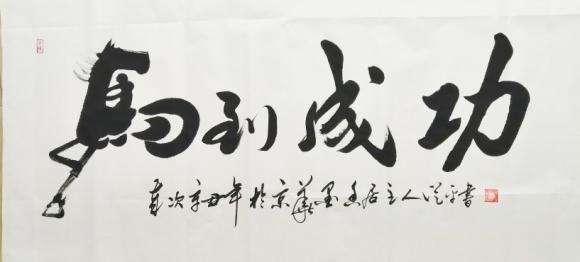 馬到成功
岁次辛丑年於京華墨香居主人 书